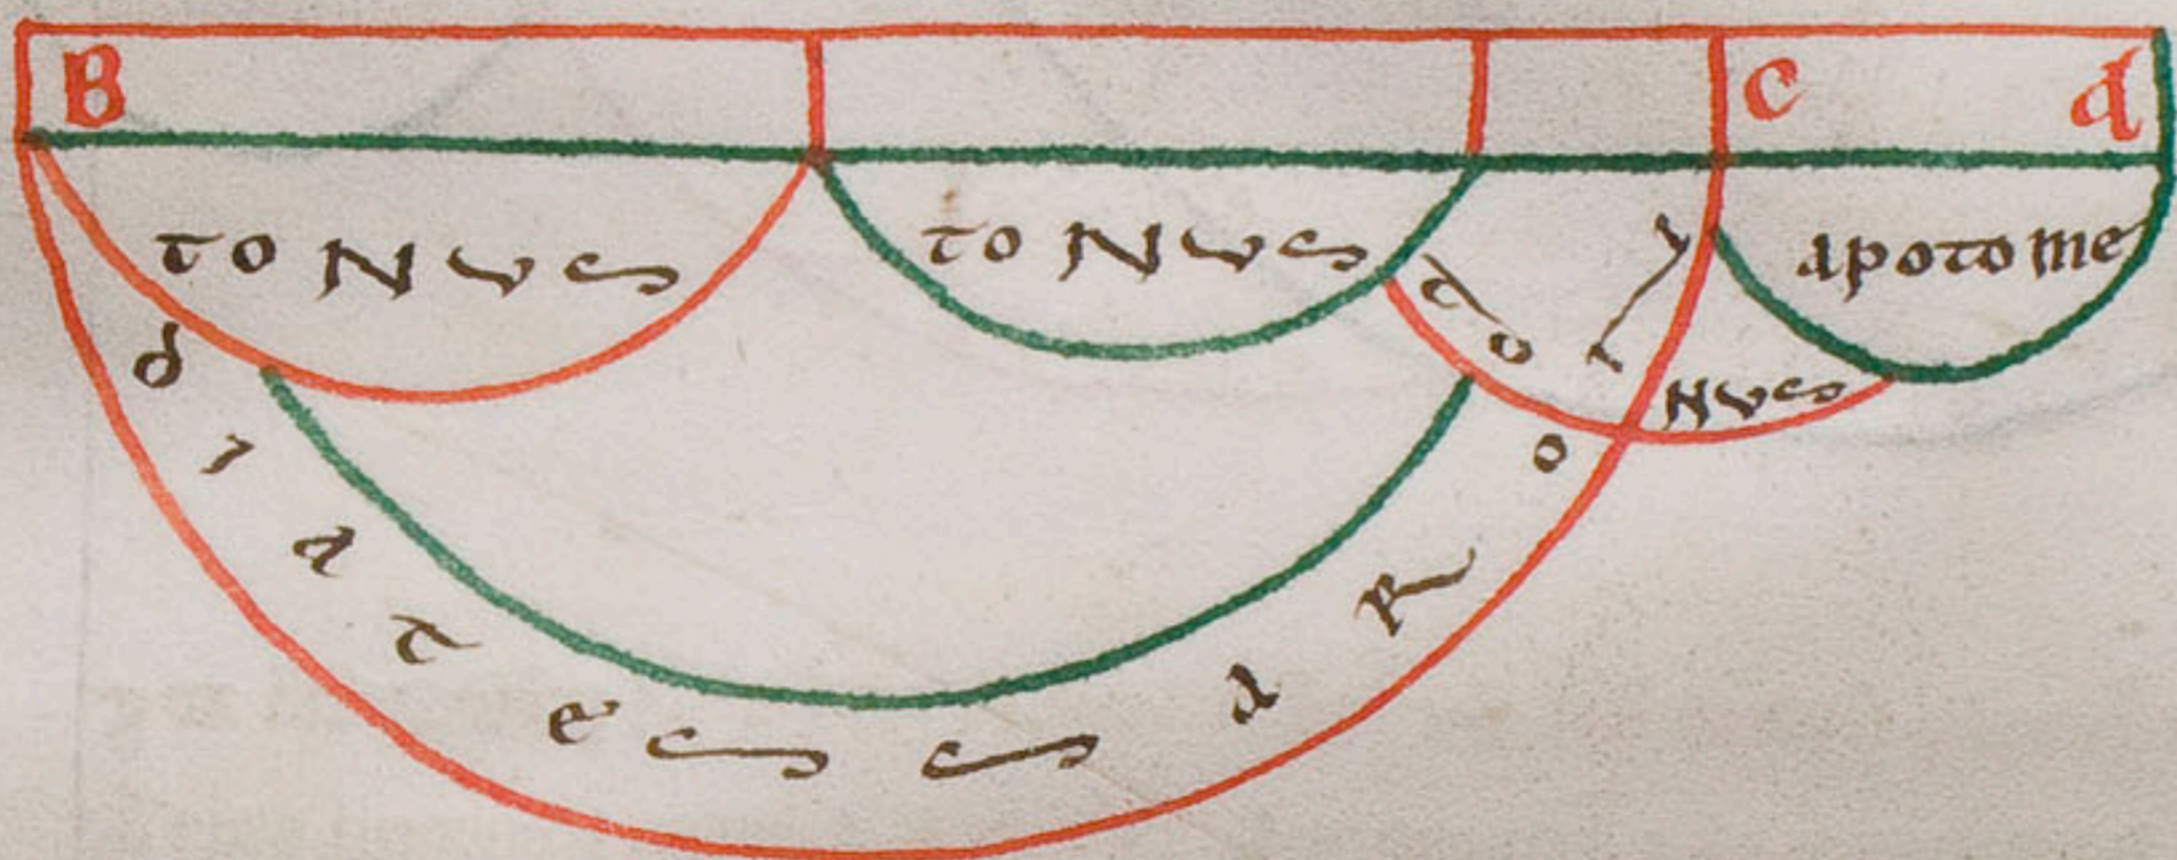 B C d
toNus toNus toNus apotome
diatessaRoN